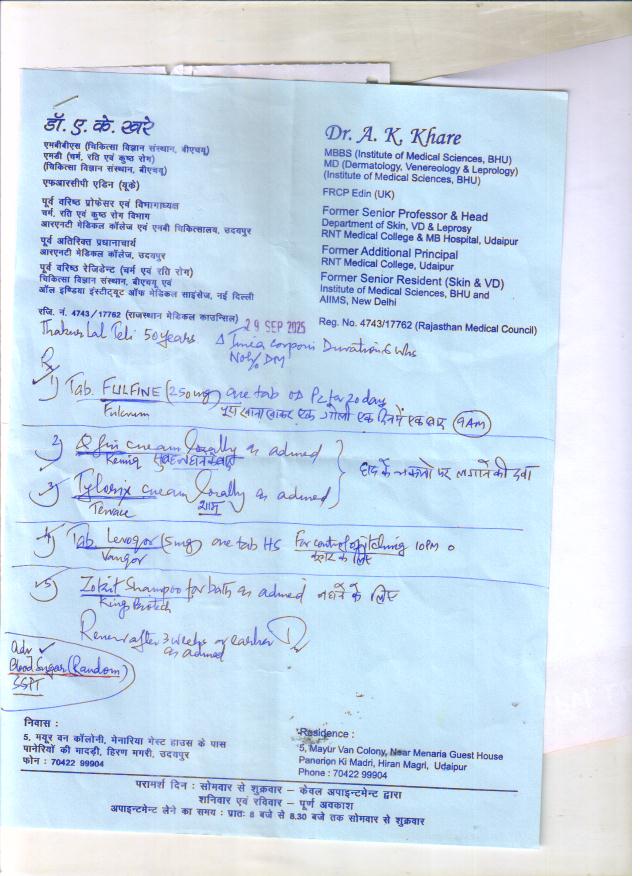 डॉ. ए. के. खरे
एमबीबीएस (चिकित्सा विज्ञान संस्थान, बीएचयू)
एमडी (चर्म, रति एवं कुष्ठ रोग)
(चिकित्सा विज्ञान संस्थान, बीएचयू)
एफआरसीपी एडिन (यूके)
पूर्व वरिष्ठ प्रोफेसर एवं विभागाध्यक्ष
चर्म, रति एवं कुष्ठ रोग विभाग
आरएनटी मेडिकल कॉलेज एवं एमबी चिकित्सालय, उदयपुर
पूर्व अतिरिक्त प्रधानाचार्य
आरएनटी मेडिकल कॉलेज, उदयपुर
पूर्व वरिष्ठ रेजिडेन्ट (चर्म एवं रति रोग)
चिकित्सा विज्ञान संस्थान, बीएचयू एवं
ऑल इण्डिया इंस्टीट्यूट ऑफ मेडिकल साइंसेज, नई दिल्ली
रजि. नं. 4743/17762 (राजस्थान मेडिकल काउन्सिल)
Dr. A. K. Khare
MBBS (Institute of Medical Sciences, BHU)
MD (Dermatology, Venereology & Leprology)
(Institute of Medical Sciences, BHU)
FRCP Edin (UK)
Former Senior Professor & Head
Department of Skin, VD & Leprosy
RNT Medical College & MB Hospital, Udaipur
Former Additional Principal
RNT Medical College, Udaipur
Former Senior Resident (Skin & VD)
Institute of Medical Sciences, BHU and
AIIMS, New Delhi
Reg. No. 4743/17762 (Rajasthan Medical Council)
29 SEP 2025
Lal Teli 50 years Δ Tinea corporis Duration 6 whs
DM
Rx
1) Tab. FULFINE (250mg) one tab OD Pc for 20 day
Fulcrum खाना खाकर एक गोली एक दिन में एक बार 9AM
2) cream locally as advised
दाद के चकतो पर लगाने की दवा
3) cream locally as advised
शाम
4) Tab. (5mg) one tab HS For control of itching 10PM
के लिए
5) Shampoo for bath as advised नहाने के लिए
King Biotech
after 3 weeks or earlier
as advised
adv
Blood Sugar (Random)
SGPT
निवास :
5, मयूर वन कॉलोनी, मेनारिया गेस्ट हाउस के पास
पानेरियों की मादड़ी, हिरण मगरी, उदयपुर
फोन : 70422 99904
Residence :
5, Mayur Van Colony, Near Menaria Guest House
Panerion Ki Madri, Hiran Magri, Udaipur
Phone : 70422 99904
परामर्श दिन : सोमवार से शुक्रवार – केवल अपाइन्टमेन्ट द्वारा
शनिवार एवं रविवार – पूर्ण अवकाश
अपाइन्टमेन्ट लेने का समय : प्रातः 8 बजे से 8.30 बजे तक सोमवार से शुक्रवार